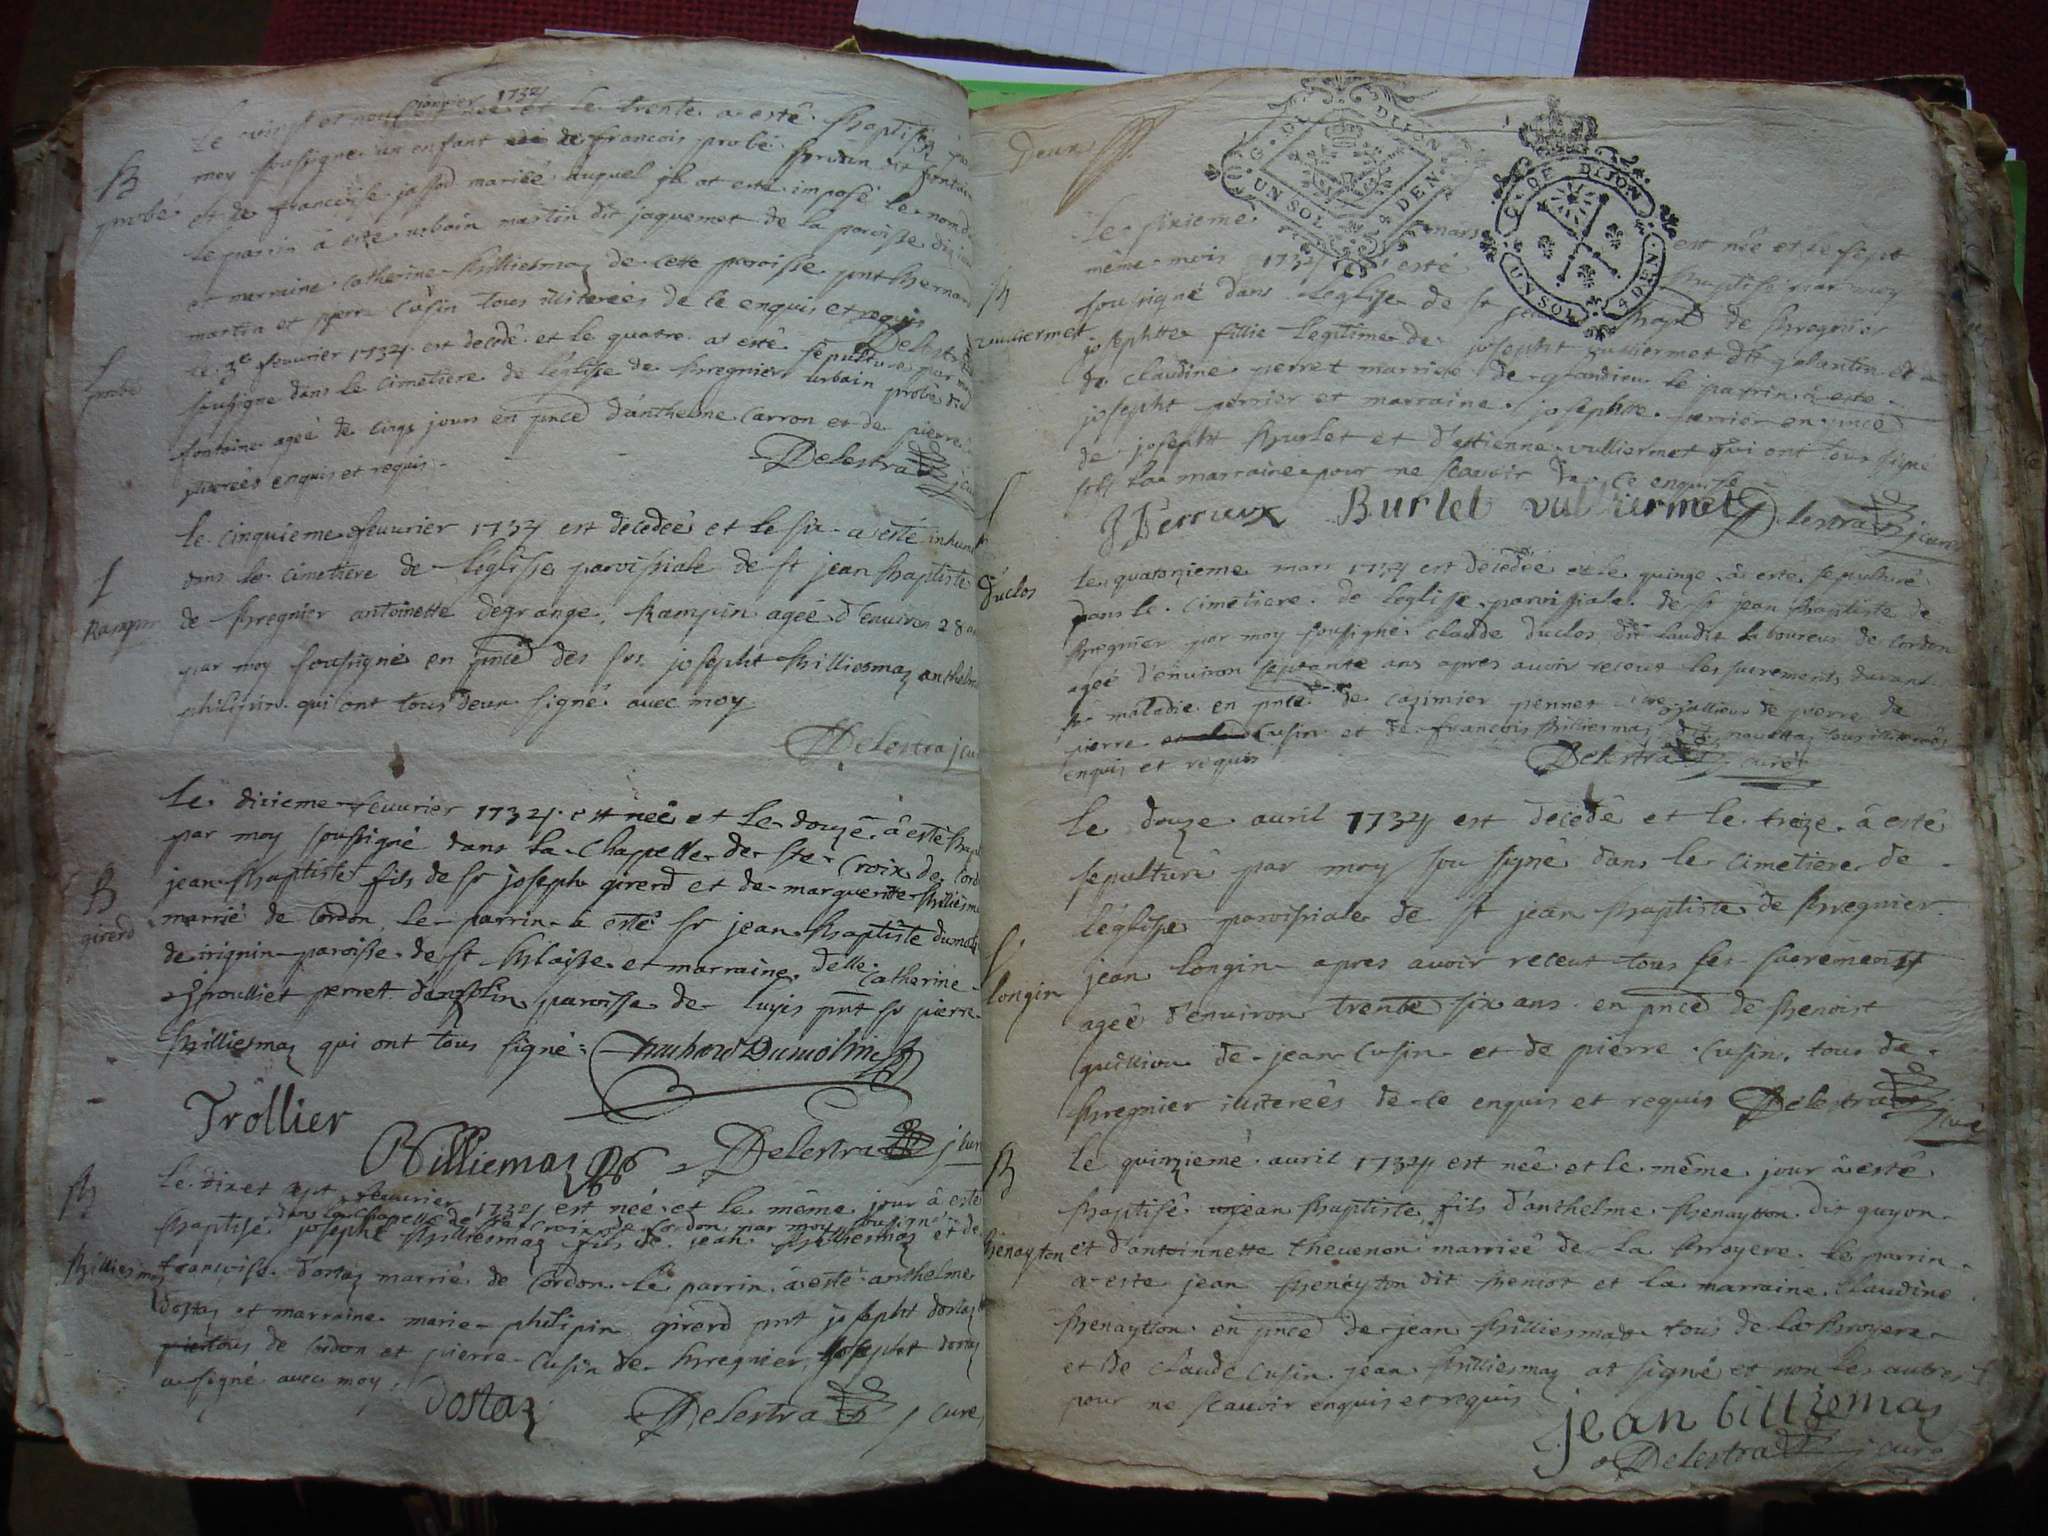 janvier 1734
Le vingt et neuf est née et le trente a esté Baptisé par
moy sousigné un enfant de francois probé Brudin dit fontaine
B
probé
et de francoise jassod mariée auquel jl at esté imposé le nom de
le parin à esté urbain martin dit jaquemet de la paroisse
et marraine Catherine Billiesmaz de cette paroisse pnt Bernard
martin et pierre Cusin tous illiterées de ce enquis et requis
Delestra
le 3e feuvrier 1734 est decedé et le quatre at esté sepulturé par moy
S
probé
sousigne dans le cimetiere de l'eglisse de Bregnier urbain probé dit
fontaine ageé de cinq jours en pnce d'anthelme Carron et de pierre
illiterées enquis et requis
Delestra j curé
le cinquieme feuvrier 1734 est decedeé et le six a esté inhumé
S
Rampin
dans le cimetiere de l'eglisse paroissiale de st jean Baptiste
de Bregnier antoinette degrange Rampin ageé d'environ 28 ans
par moy sousigné en pnce des srs josepht Billiesmaz anthelme
philipin qui ont tous deux signé avec moy
Delestra j curé
Le dixieme feuvrier 1734 est née et le douze à esté Bapt
par moy soussigné dans la Chapelle de ste Croix de Cord
B
girerd
jean Baptiste fils de sr joseph girerd et de marguerite Billiesma
marrié de Cordon le parrin à esté sr jean Baptiste dumol
de irignin paroisse de st Blaisse et marraine delle Catherine
perret paroisse de luyis pnt sr pierre
Billiesmaz qui ont tous signé
Dumolin
Trollier
Billiemaz
Delestra j curé
B
Billiesmaz
Le dix et sept feuvrier 1734 est née et le même jour à esté
dans la chapelle de ste Croix de Cordon par moy sousigné
Baptisé josepht Billiesmaz fils de jean Billiesmaz et de
francoise dostaz marrié de Cordon le parrin à esté anthelme
dostaz et marraine marie philipin girerd pnt josepht dostaz
tous de Cordon et pierre Cusin de Bregnier josepht dostaz
a signé avec moy
dostaz
Delestra j curé
Deux
G. DE DIJON
UN SOL 4 DEN.
G. DE DIJON
UN SOL 4 DEN.
Le sixieme mars est née et le sept
même mois 1734 a esté Baptisé par moy
B
vulliermet
sousigné dans l'eglisse de st jean Bapt de Bregnier
josephtte fillie legitime de josepht vulliermet dit et
de claudine perret marriée de glandieu le parrin à esté
josepht perrier et marraine josephtte perrier en pnce
de josepht Burlet et d'estienne vulliermet qui ont tous signé
sofs la marraine pour ne scavoir de ce enquise
J Perrieux Burlet vulliermet Delestra j curé
S
Duclos
Le quatorzieme mars 1734 est decedée et le quinze à esté sepulturé
dans le cimetiere de l'eglisse paroissiale de st jean Baptiste de
Bregnier par moy sousigné claude duclos dit laudit laboureur de Cordon
ageé d'environ septante ans apres avoir receut les sacrements durant
sa maladie en pnce de Casimier pennet de pierre
pierre Cusin et de francois Billiesmaz tous illiterées
enquis et requis
Delestra j curé
Le douze avril 1734 est decedé et le treize à esté
sepulturé par moy sousigné dans le cimetiere de
l'eglisse paroissiale de st jean Baptiste de Bregnier
S
longin
jean longin apres avoir receut tous ses sacrements
ageé d'environ trente six ans en pnce de Benoist
guillion de jean Cusin et de pierre Cusin tous de
Bregnier illiterées de ce enquis et requis Delestra j curé
B
Benayton
Le quinzieme avril 1734 est née et le même jour à esté
Baptisé jean Baptiste fils d'anthelme Benayton dit guyon
et d'antoinnette thevenon marriée de la Broyere le parrin
a esté jean Benayton dit Beniot et la marraine Claudine
Benaytton en pnce de jean Billiesmaz tous de la Broyere
et de claude Cusin jean Billiesmaz at signé et non les autres
pour ne scavoir enquis et requis
jean billiemaz
Delestra j curé